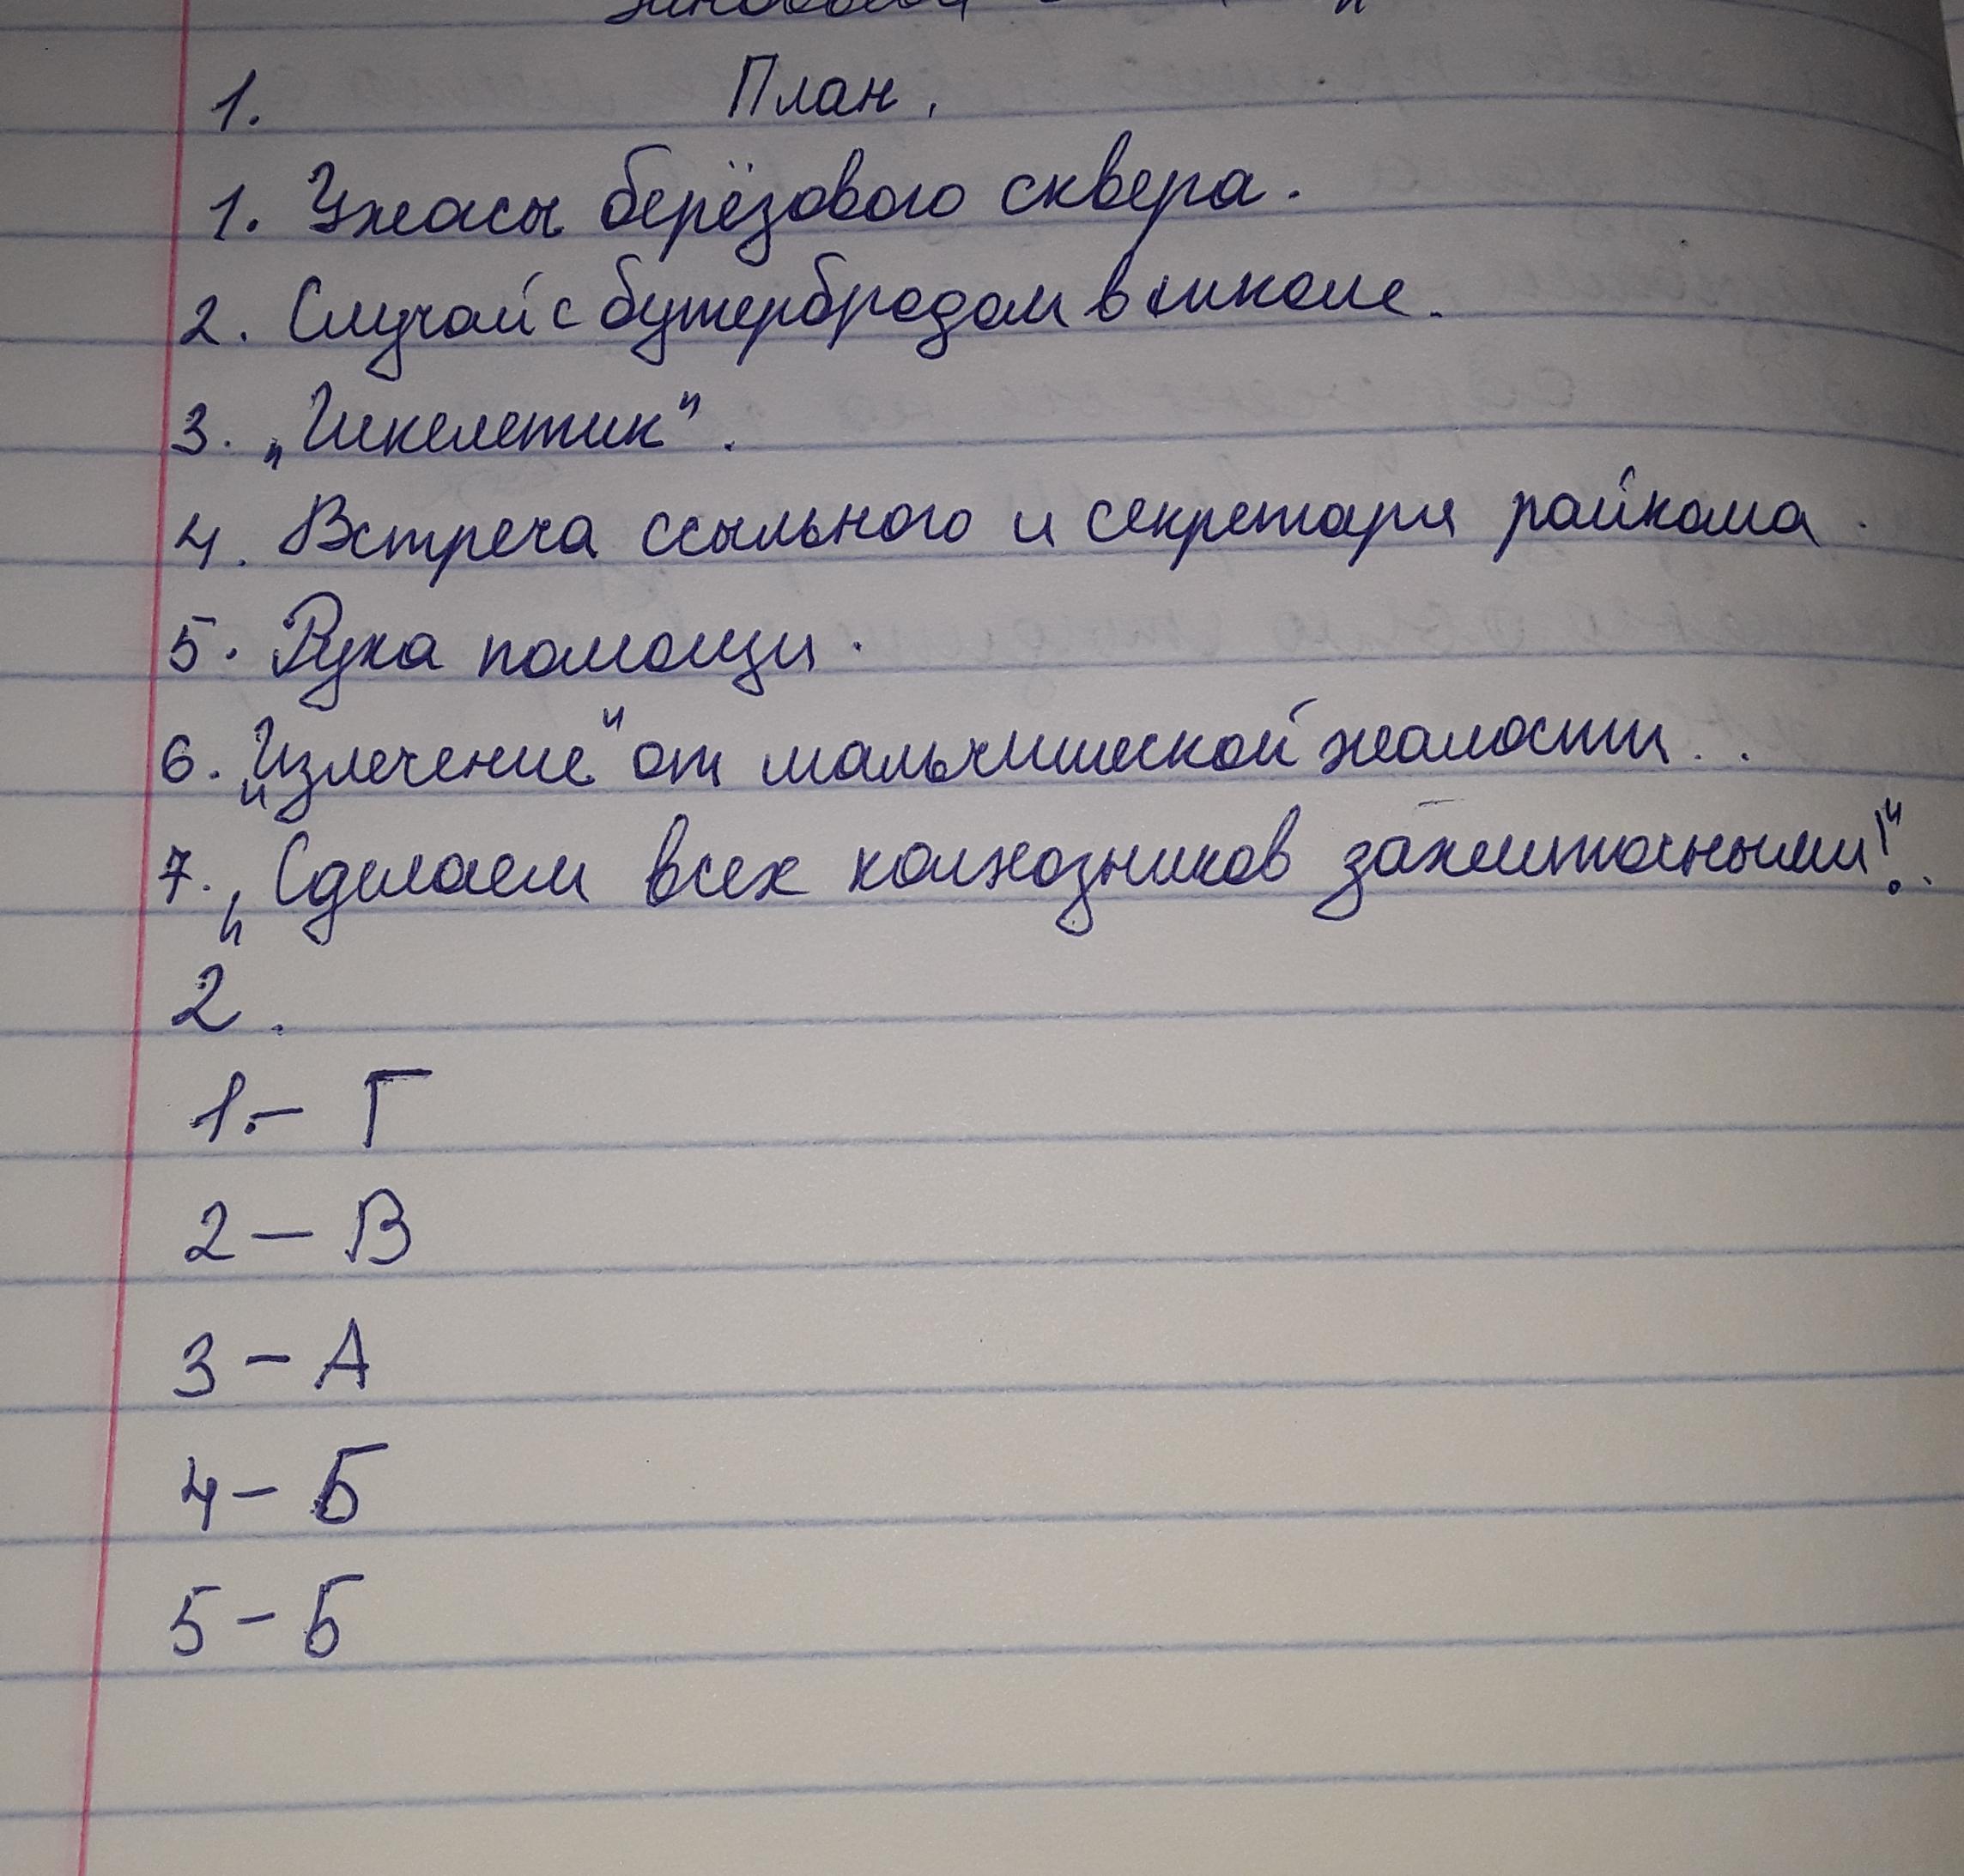 1. План.
1. Ужасы берёзового сквера.
2. Случай с бутербродом в школе.
3. „Шкелетик“.
4. Встреча ссыльного и секретаря райкома.
5. Рука помощи.
6. „Излечение“ от мальчишеской жалости..
7. „Сделаем всех колхозников зажиточными!“.
2.
1.- Г
2 - В
3 - А
4 - Б
5 - Б